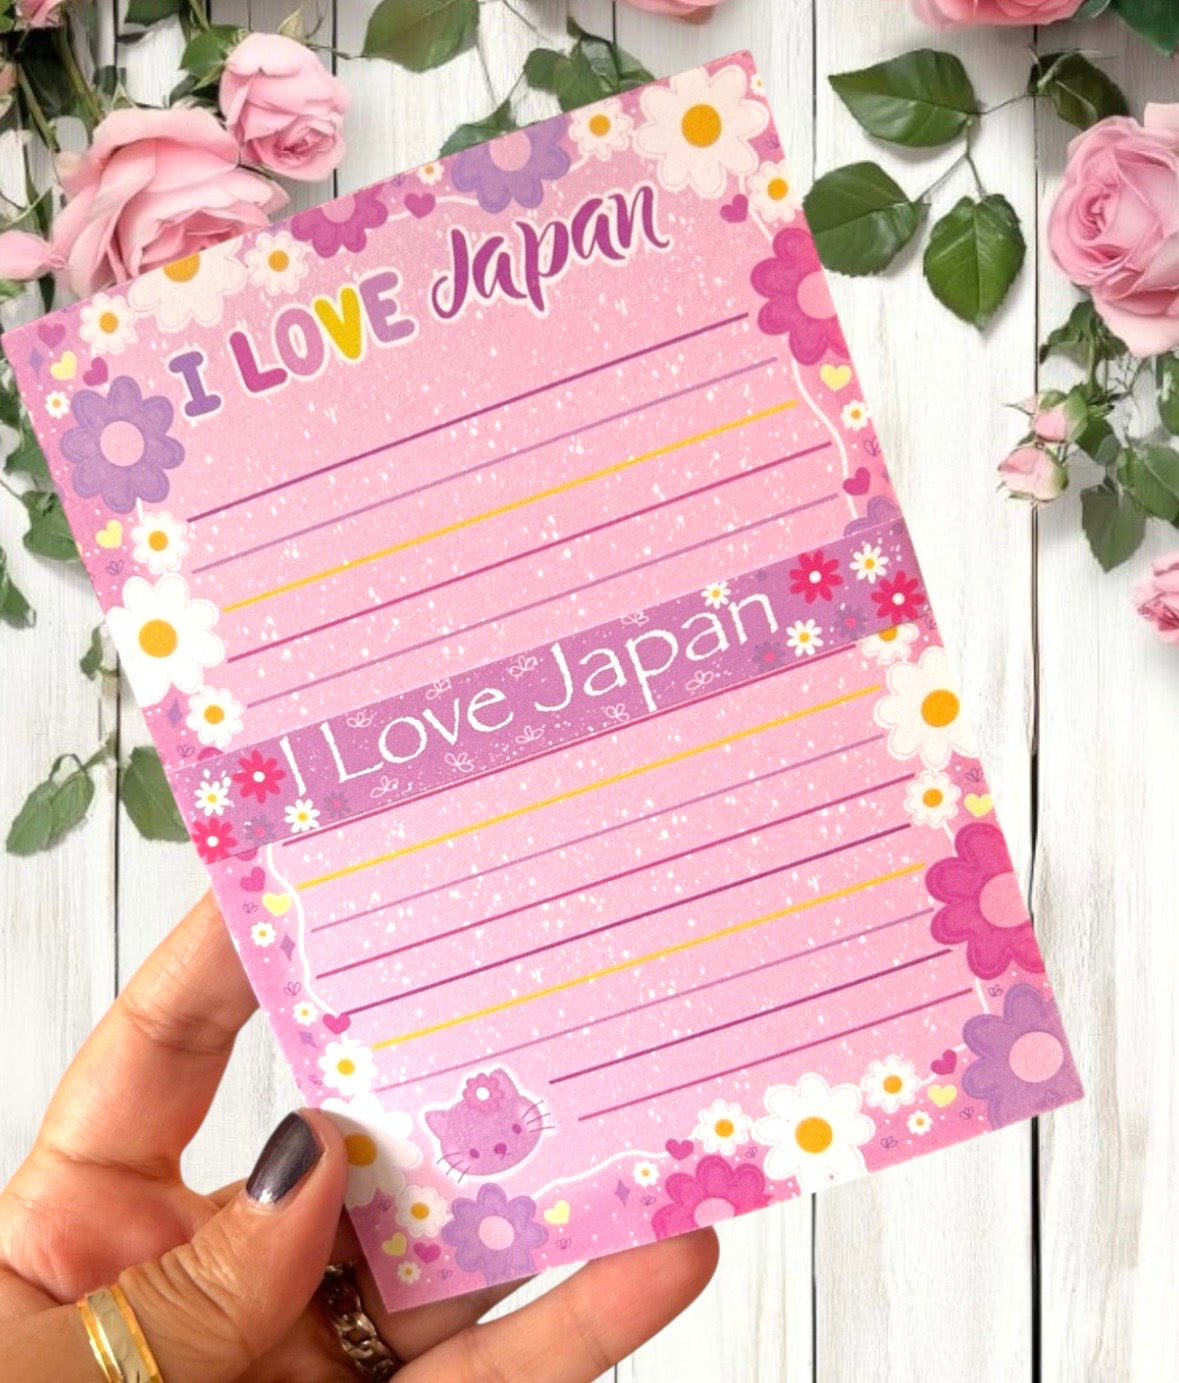 I LOVE Japan
I Love Japan